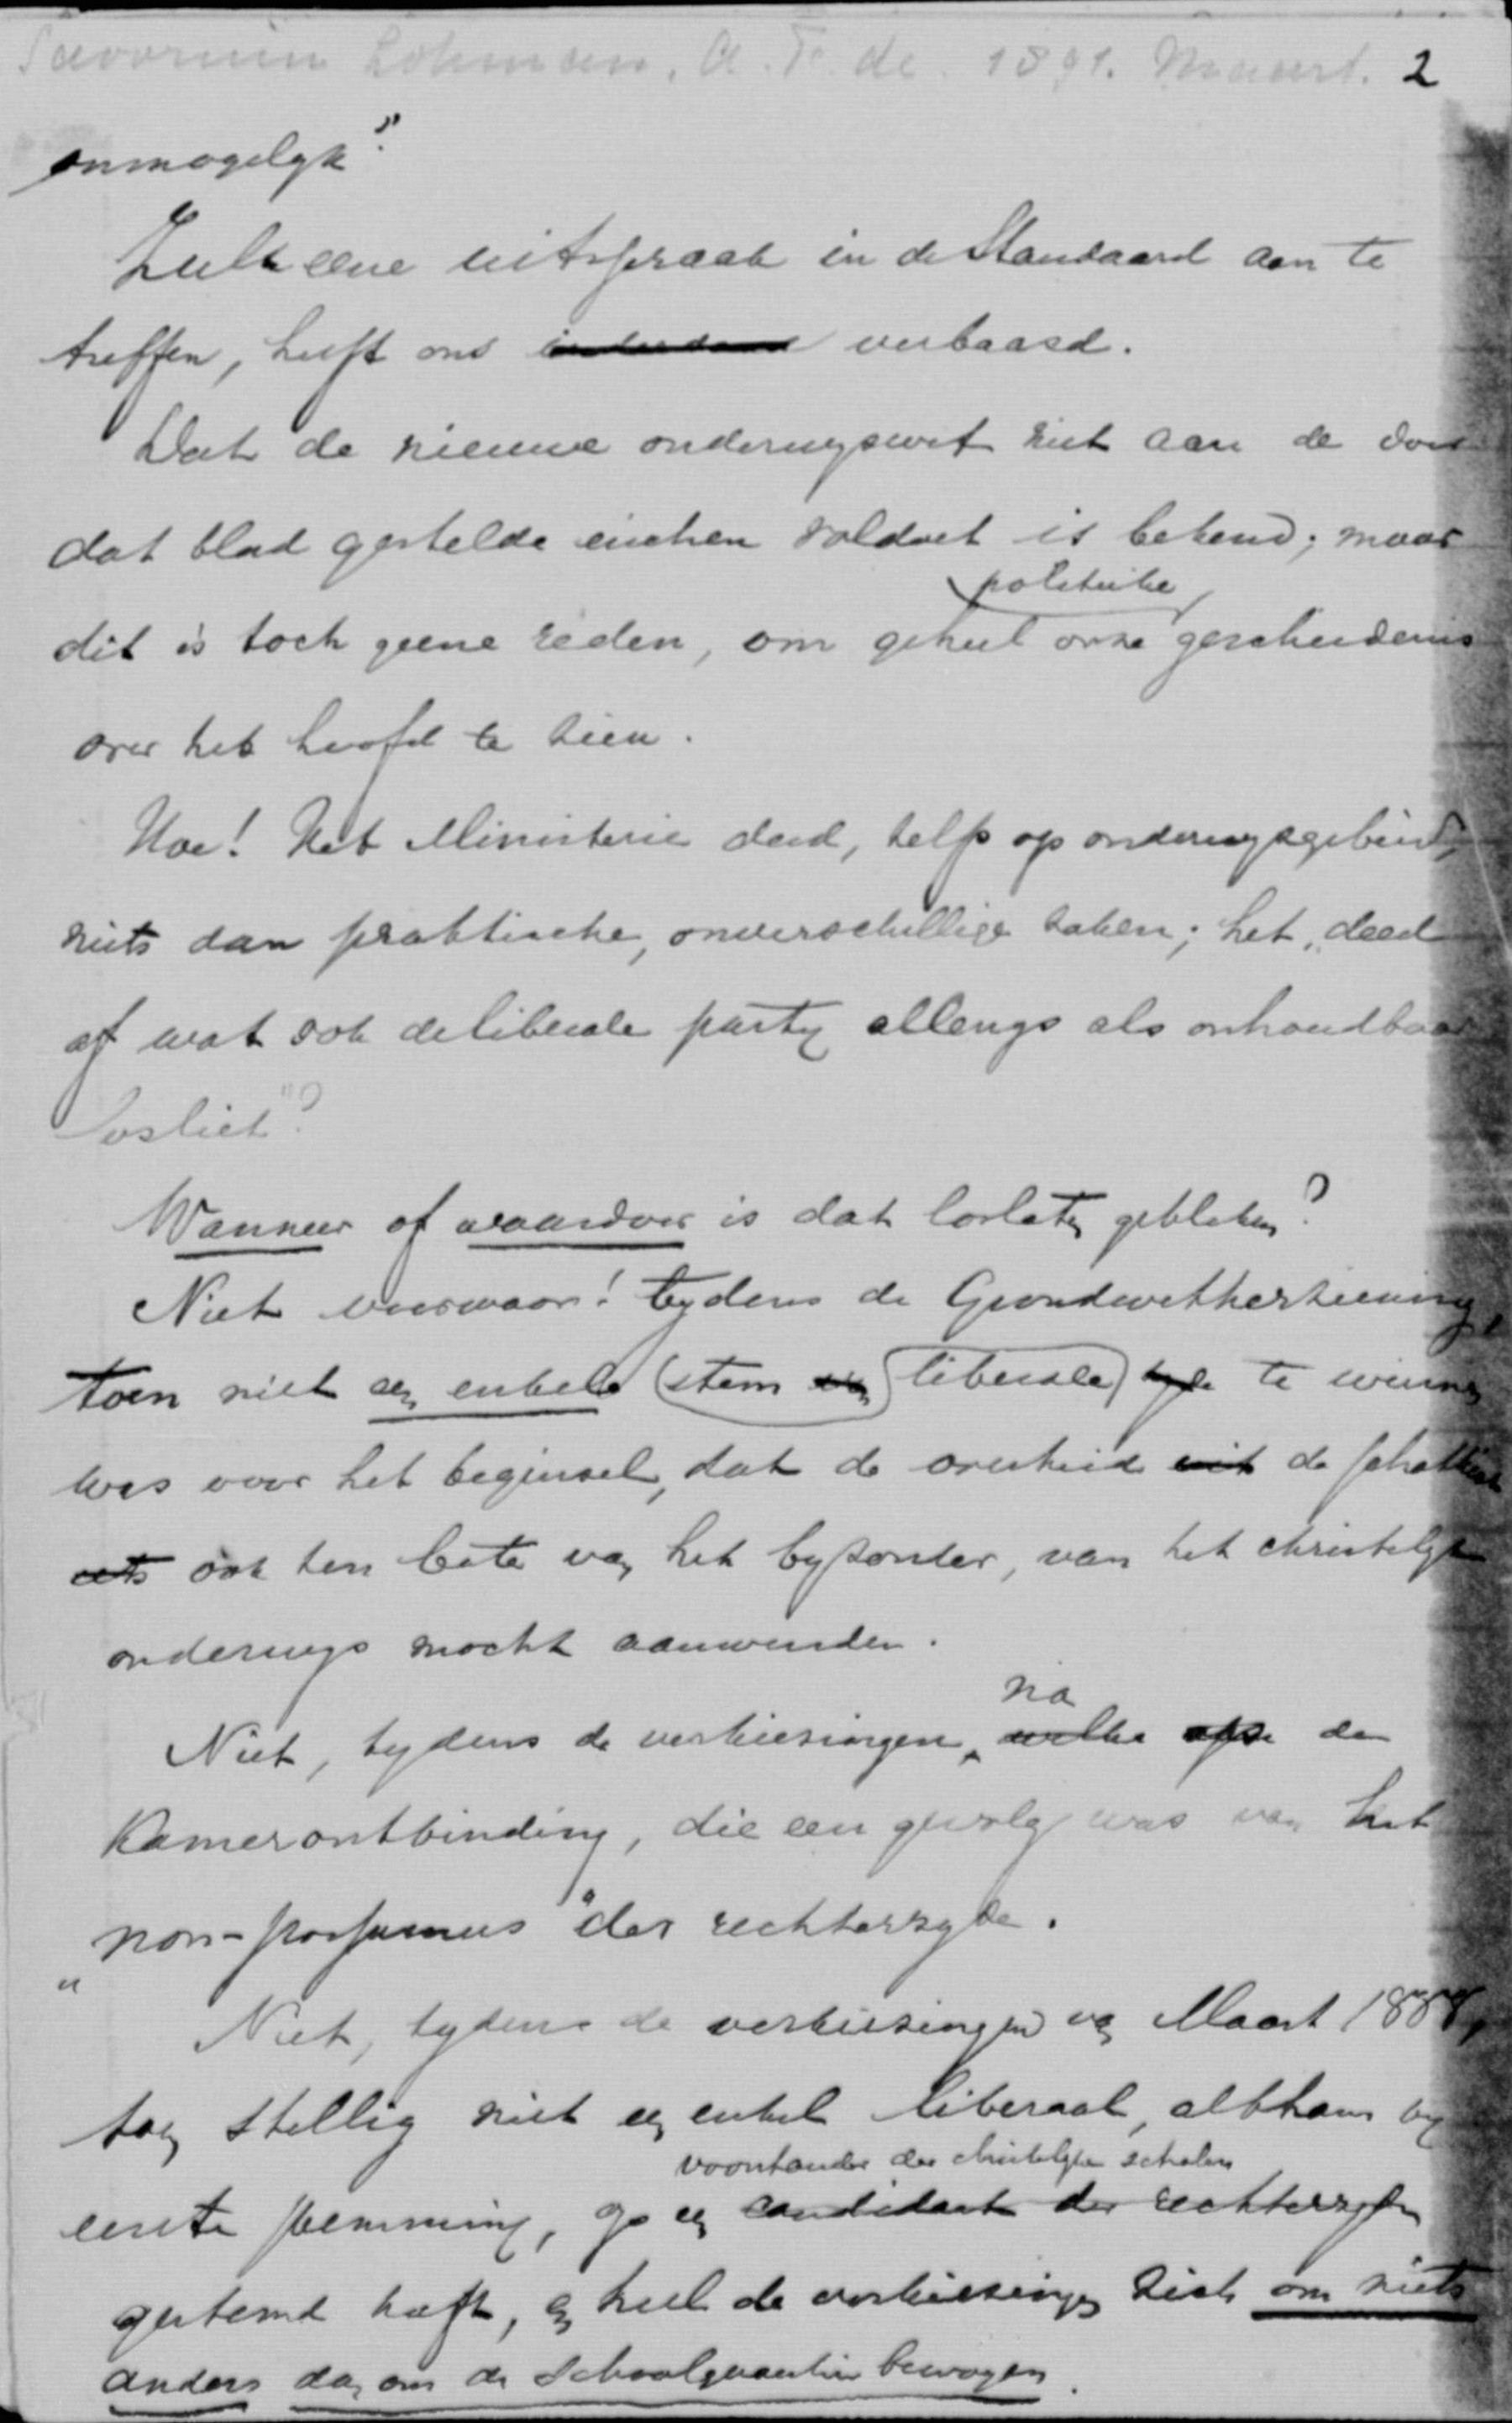 Savornin Lohman, A. F. de. 1891. Maart. 2
onmogelyk"?
Zulk eene uitspraak in de Standaard aan te
treffen, heeft ons inderdaad verbaasd.
Dat de nieuwe onderwyswet niet aan de door
dat blad gestelde eischen voldoet is bekend; maar
dit is toch geene reden, om geheel onze politieke geschiedenis
over het hoofd te zien.
Hoe! Het Ministerie deed, zelfs op onderwysgebied,
niets dan praktische, onverschillige zaken; het "deed
af wat ook de liberale party allengs als onhoudbaar
losliet"?
Wanneer of waardoor is dat loslaten gebleken?
Niet voorwaar! tydens de Grondwetherziening,
toen niet een enkele stem liberale zyde te winnen
was voor het beginsel, dat de overheid uit de schatkist
ook ten bate van het byzonder, van het christelyk
onderwys mocht aanwenden.
Niet, tydens de verkiezingen, na welke de
Kamerontbinding, die een gevolg was van het
"non-possumus" der rechterzyde.
Niet, tydens de verkiezingen van Maart 1888,
toen stellig niet een enkel liberaal, althans by
voorstander der christelyke scholen
eerste stemming, op een candidaat der rechterzyde
gestemd heeft, en heel de verkiezingen zich om niets
anders dan om de schoolquaestie bewogen.